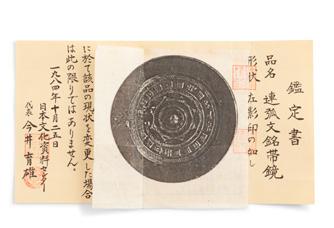 鑑定書
品名 連弧文銘帯鏡
形状 左影印の如し
に於て該品の現状を変更した場合
は此の限りではありません。
一九八四年十月二五日
日本文化資料センター
代表 今井育雄